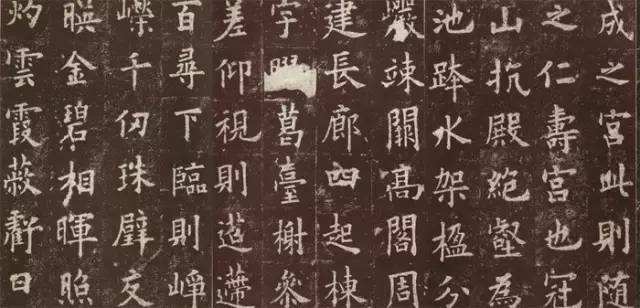 成之宮此則随
之仁壽宮也冠
山抗殿絕壑為
池跨水架楹分
巖竦闕髙閣周
建長廊四起棟
宇葛臺榭參
差仰視則迢遰
百尋下臨則崢
嶸千仞珠璧交
暎金碧相暉照
灼雲霞蔽虧日